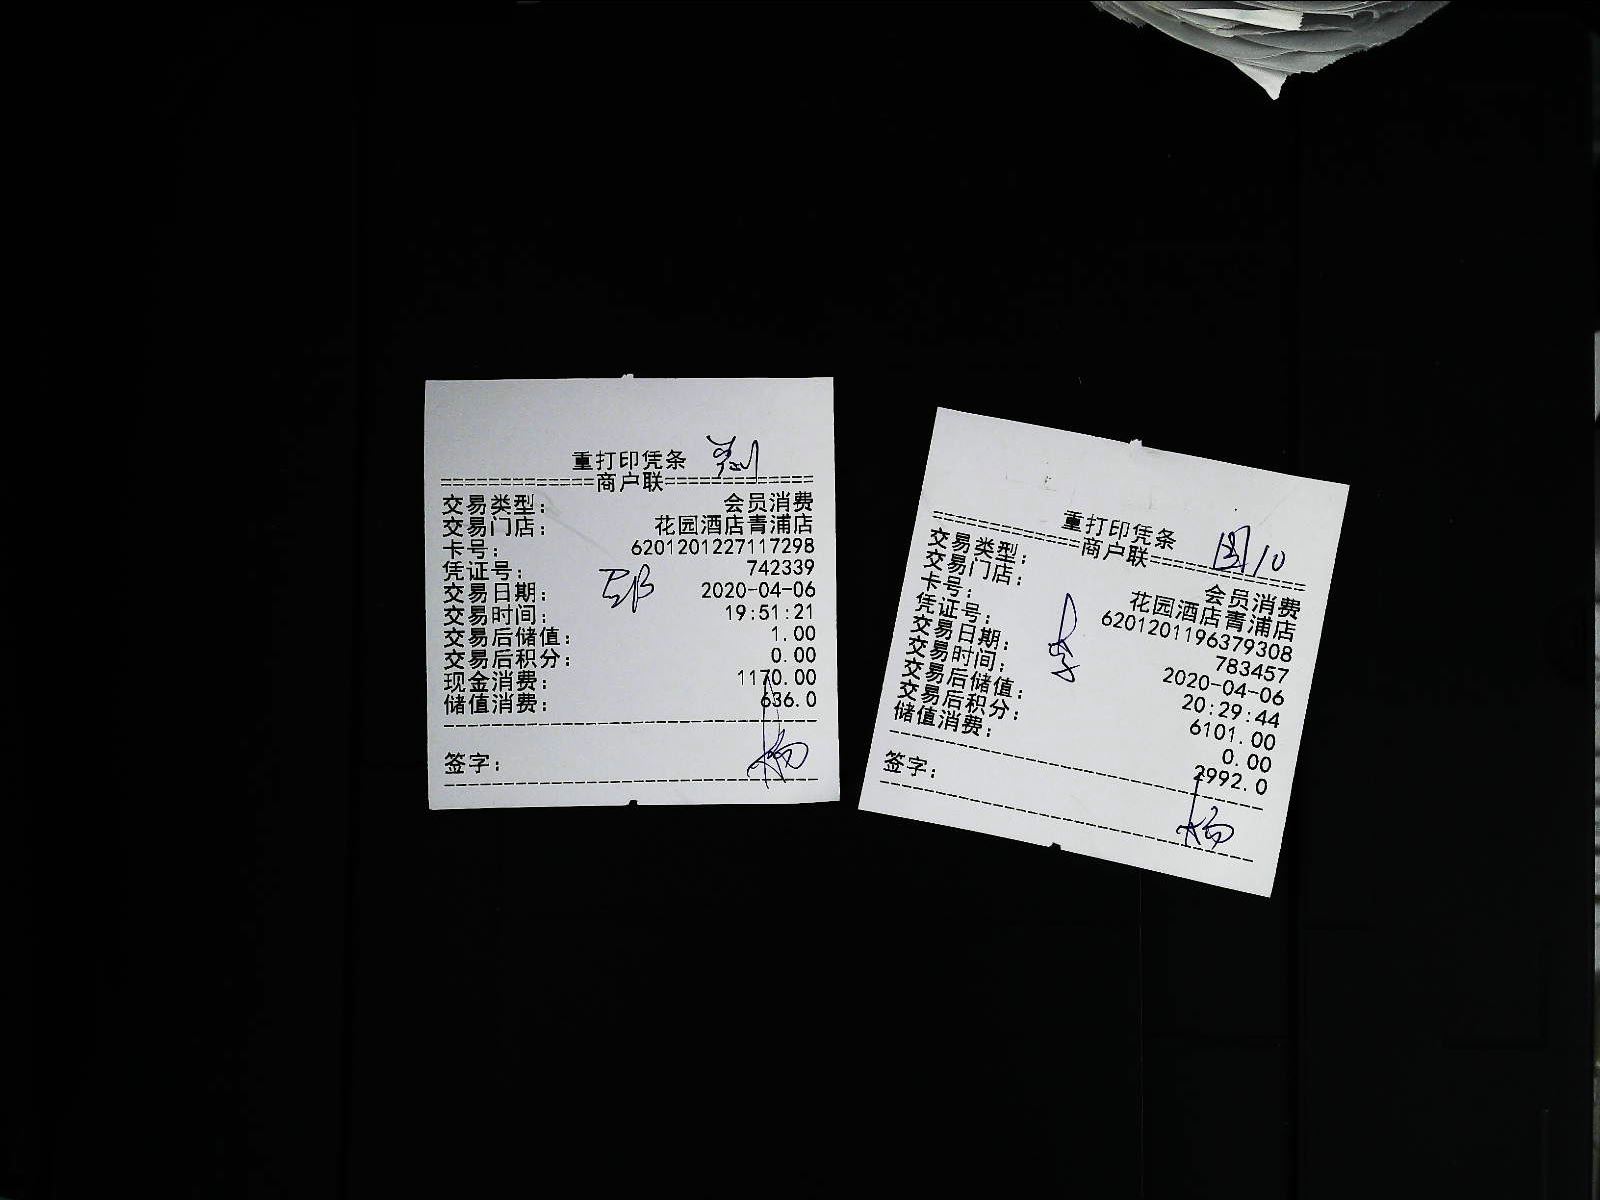 重打印凭条
=============商户联=============
交易类型: 会员消费
交易门店: 花园酒店青浦店
卡号: 6201201227117298
凭证号: 742339
交易日期: 2020-04-06
交易时间: 19:51:21
交易后储值: 1.00
交易后积分: 0.00
现金消费: 1170.00
储值消费: 636.0
签字: 杨
重打印凭条
=============商户联=============
交易类型: 会员消费
交易门店: 花园酒店青浦店
卡号: 6201201196379308
凭证号: 783457
交易日期: 2020-04-06
交易时间: 20:29:44
交易后储值: 6101.00
交易后积分: 0.00
储值消费: 2992.0
签字: 杨